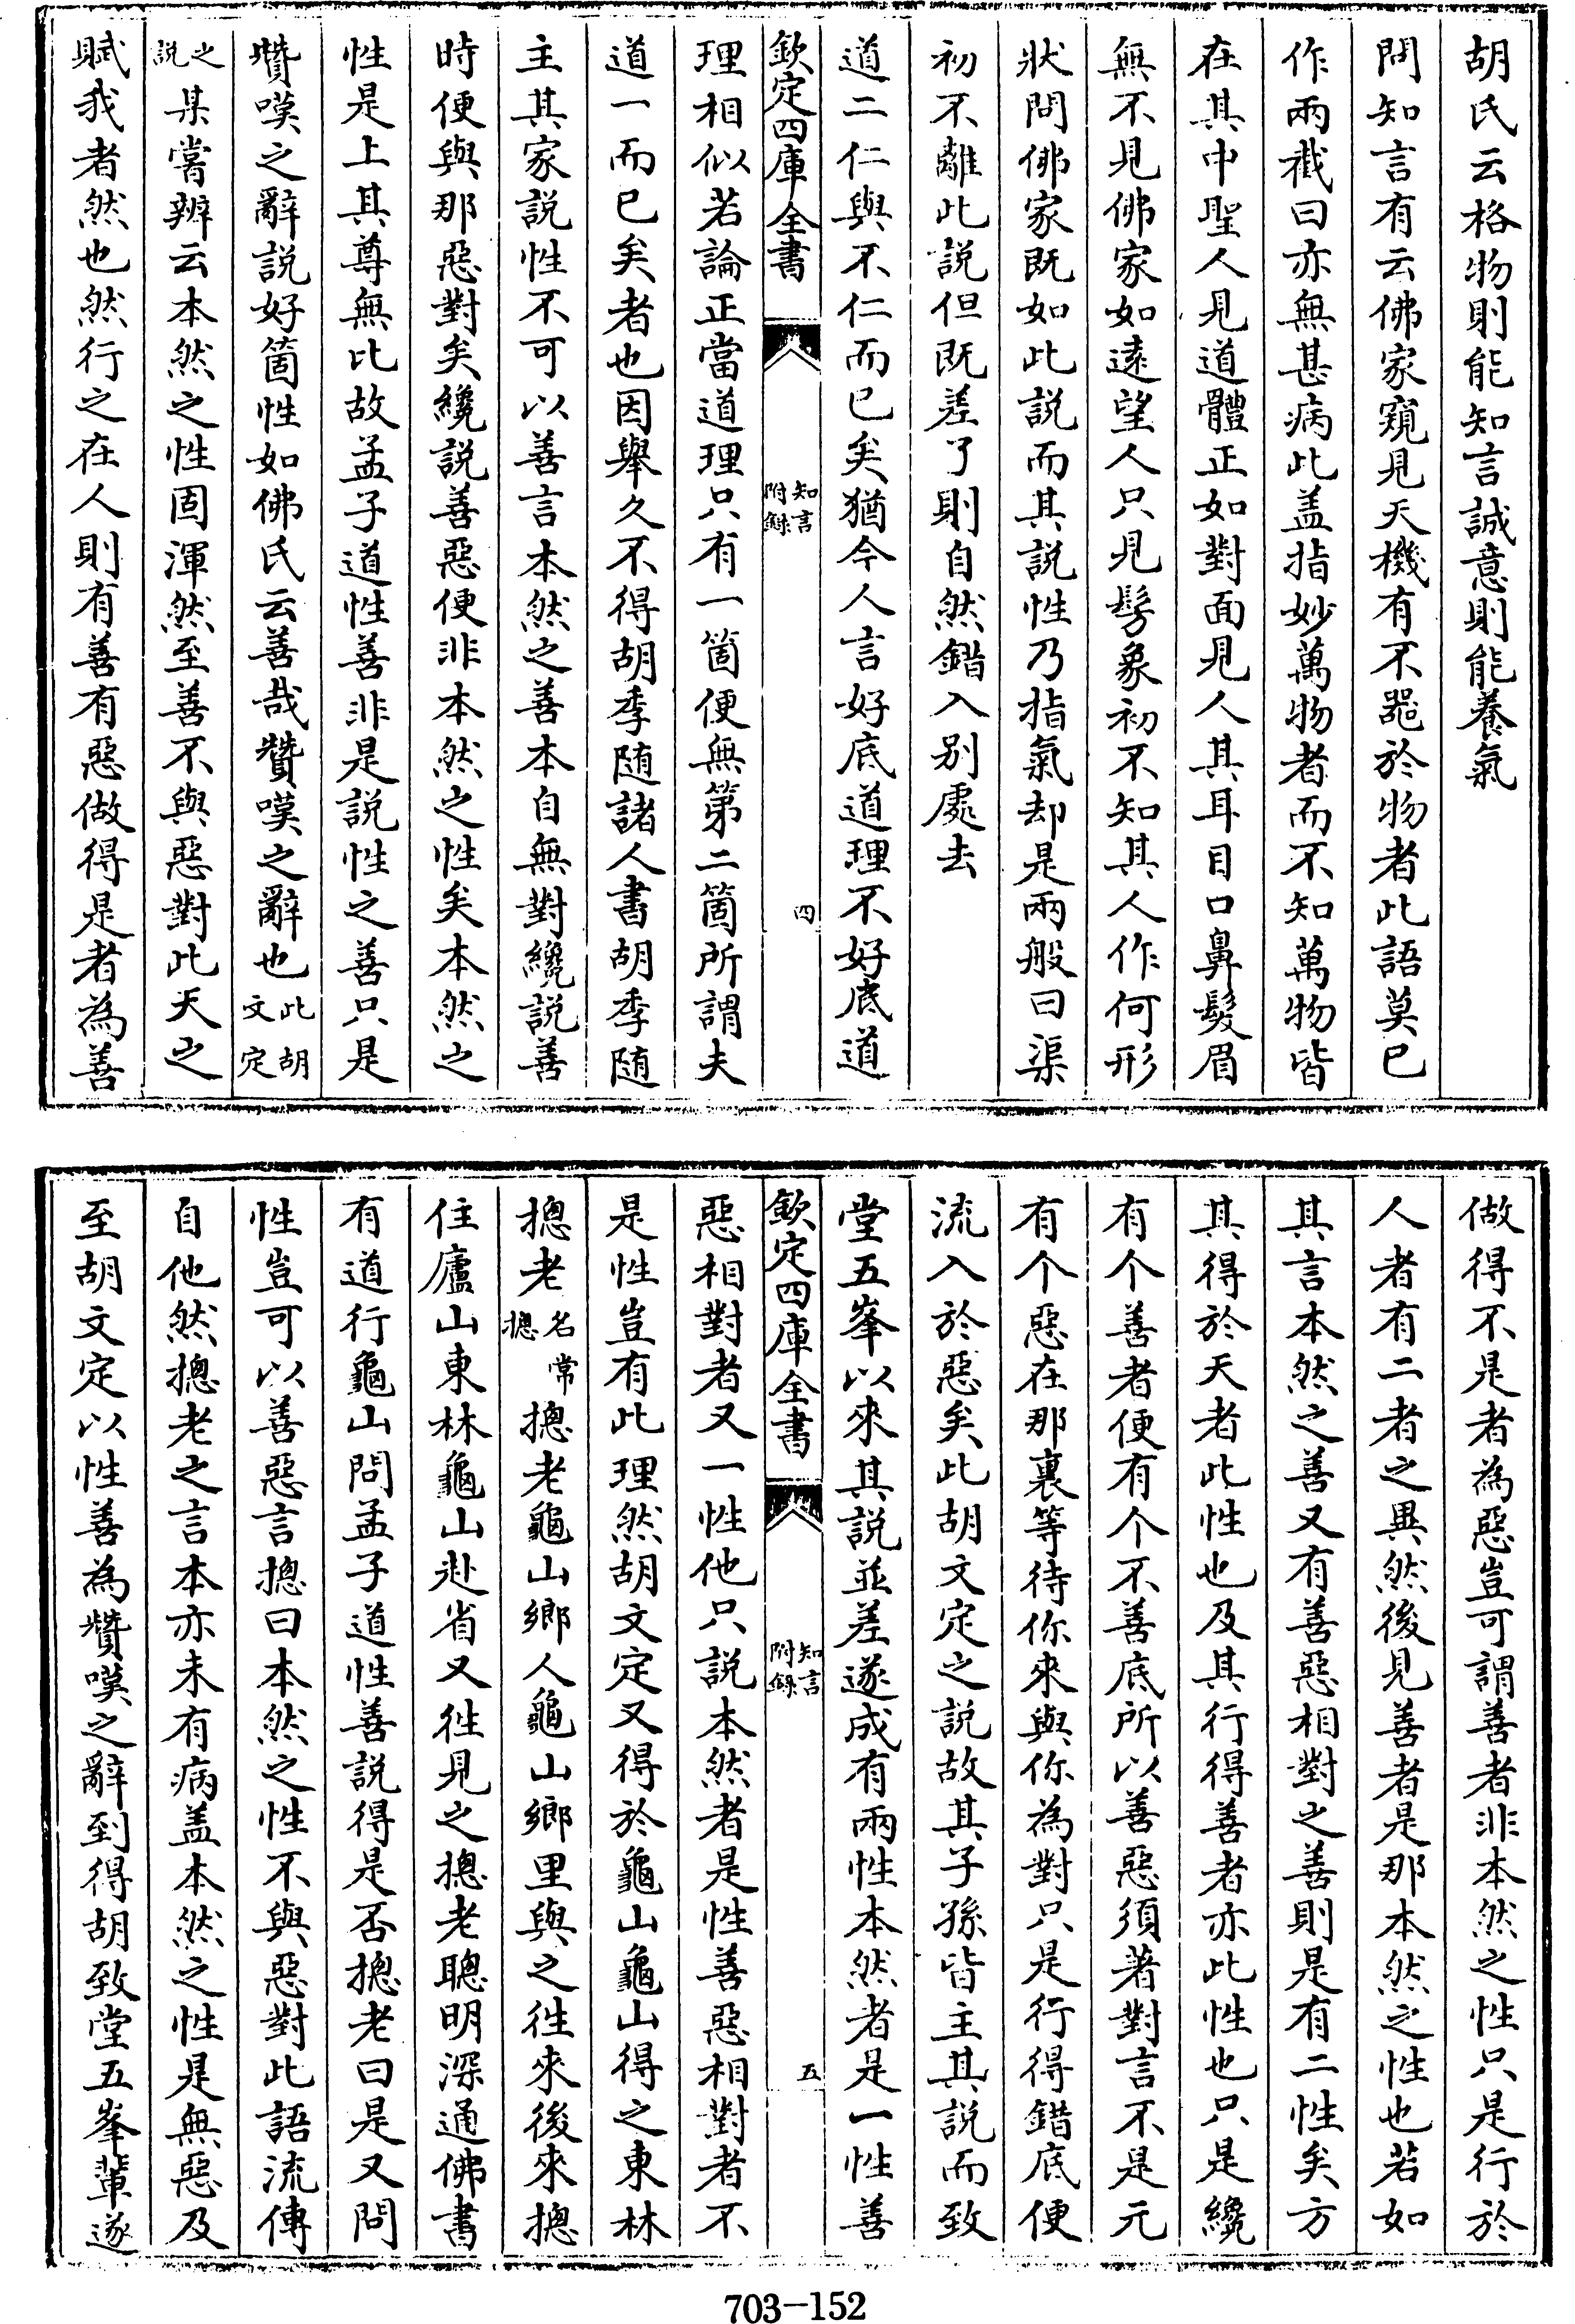 胡氏云格物則能知言誠意則能養氣
問知言有云佛家窺見天機有不器於物者此語莫已
作兩截曰亦無甚病此盖指妙萬物者而不知萬物皆
在其中聖人見道體正如對面見人其耳目口鼻髮眉
無不見佛家如遠望人只見髣象初不知其人作何形
狀問佛家既如此説而其説性乃指氣却是兩般曰渠
初不離此説但既差了則自然錯入别處去
道二仁與不仁而已矣猶今人言好底道理不好底道
欽定四庫全書
知言附録
四
理相似若論正當道理只有一箇便無第二箇所謂夫
道一而已矣者也因舉久不得胡季随諸人書胡季随
主其家説性不可以善言本然之善本自無對纔説善
時便與那惡對矣纔説善惡便非本然之性矣本然之
性是上其尊無比故孟子道性善非是説性之善只是
贊嘆之辭説好箇性如佛氏云善哉贊嘆之辭也此胡文定
之説某嘗辨云本然之性固渾然至善不與惡對此天之
賦我者然也然行之在人則有善有惡做得是者為善
做得不是者為惡豈可謂善者非本然之性只是行於
人者有二者之異然後見善者是那本然之性也若如
其言本然之善又有善惡相對之善則是有二性矣方
其得於天者此性也及其行得善者亦此性也只是纔
有个善者便有个不善底所以善惡須著對言不是元
有个惡在那裏等待你來與你為對只是行得錯底便
流入於惡矣此胡文定之説故其子孫皆主其説而致
堂五峯以來其説並差遂成有兩性本然者是一性善
欽定四庫全書
知言附録
五
惡相對者又一性他只説本然者是性善惡相對者不
是性豈有此理然胡文定又得於龜山龜山得之東林
摠老名常摠摠老龜山鄉人龜山鄉里與之徃來後來摠
住廬山東林龜山赴省又徃見之摠老聰明深通佛書
有道行龜山問孟子道性善説得是否摠老曰是又問
性豈可以善惡言摠曰本然之性不與惡對此語流傳
自他然摠老之言本亦未有病盖本然之性是無惡及
至胡文定以性善為贊嘆之辭到得胡致堂五峯輩遂
703-152